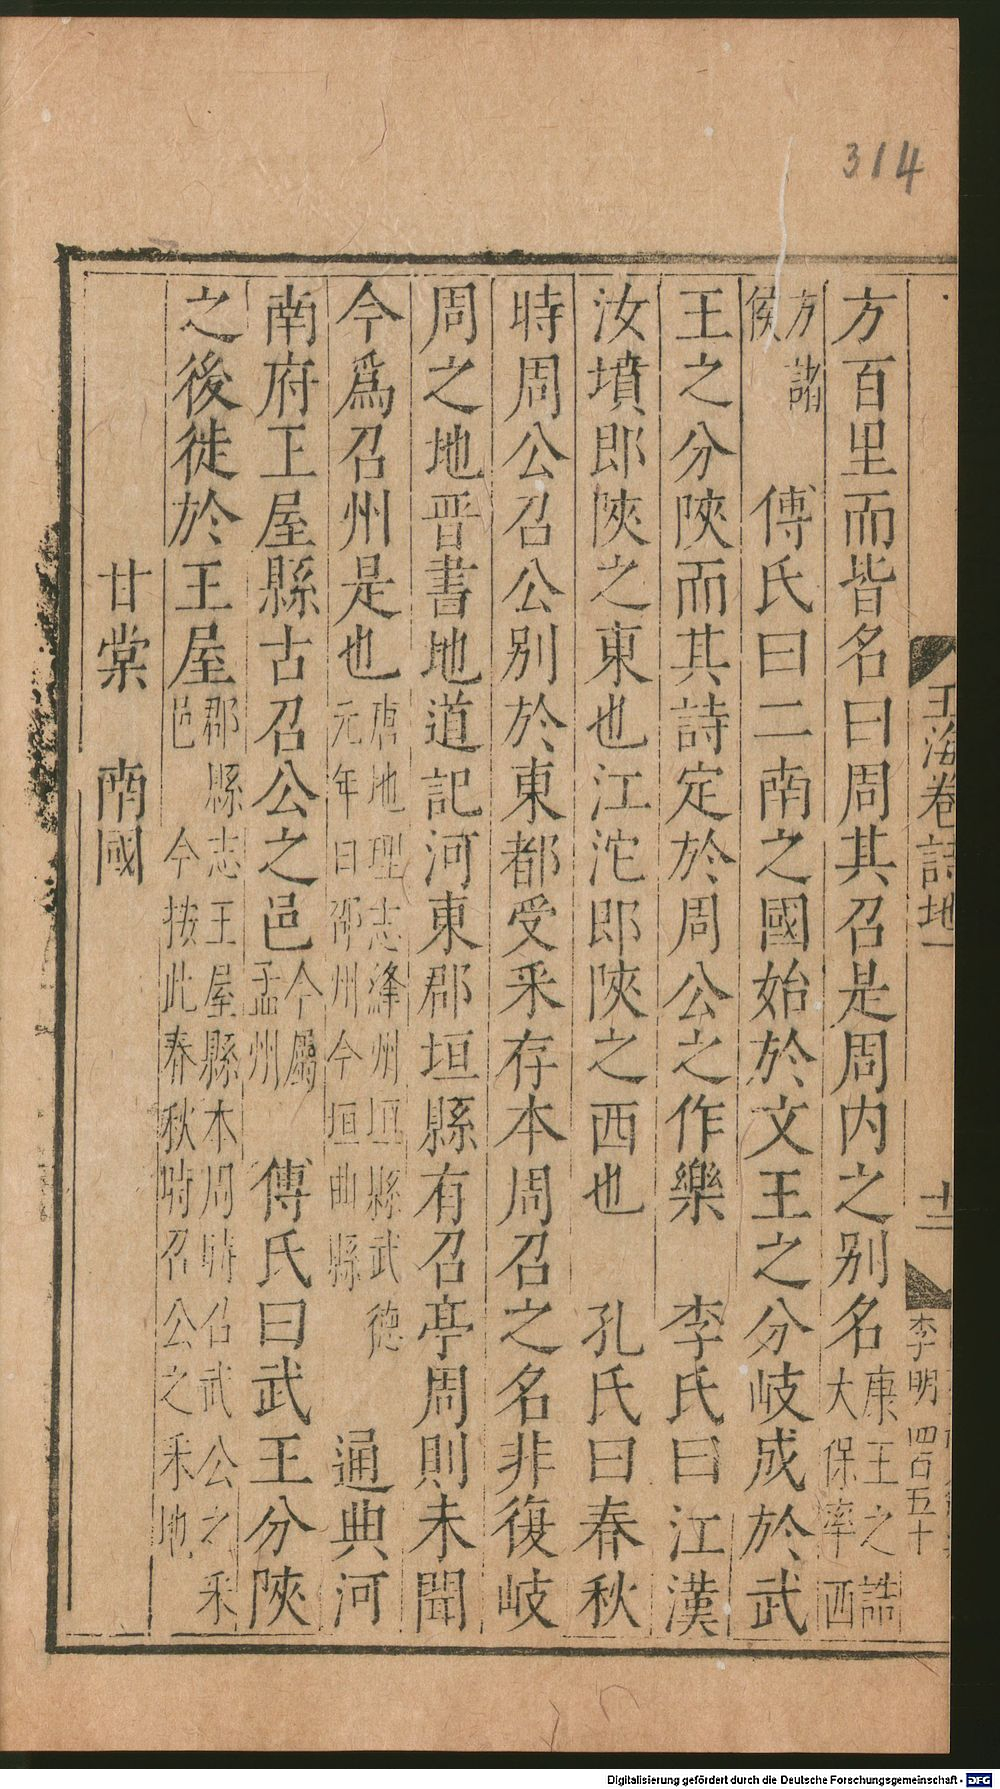 314
玉海卷詩地一
十二
李明 四百五十
方百里而皆名曰周其召是周内之别名康王之誥大保率西
方諸侯 傅氏曰二南之國始於文王之分岐成於武
王之分陝而其詩定於周公之作樂 李氏曰江漢
汝墳郎陝之東也江沱郎陝之西也 孔氏曰春秋
時周公召公别於東都受采存本周召之名非復岐
周之地晋書地道記河東郡垣縣有召亭周則未聞
今爲召州是也唐地理志絳州垣縣武德元年曰邵州今垣曲縣 通典河
南府王屋縣古召公之邑今屬孟州 傅氏曰武王分陝
之後徙於王屋郡縣志王屋縣本周時召武公之采邑 今按此春秋時召公之采地
甘棠 南國
Digitalisierung gefördert durch die Deutsche Forschungsgemeinschaft - DFG